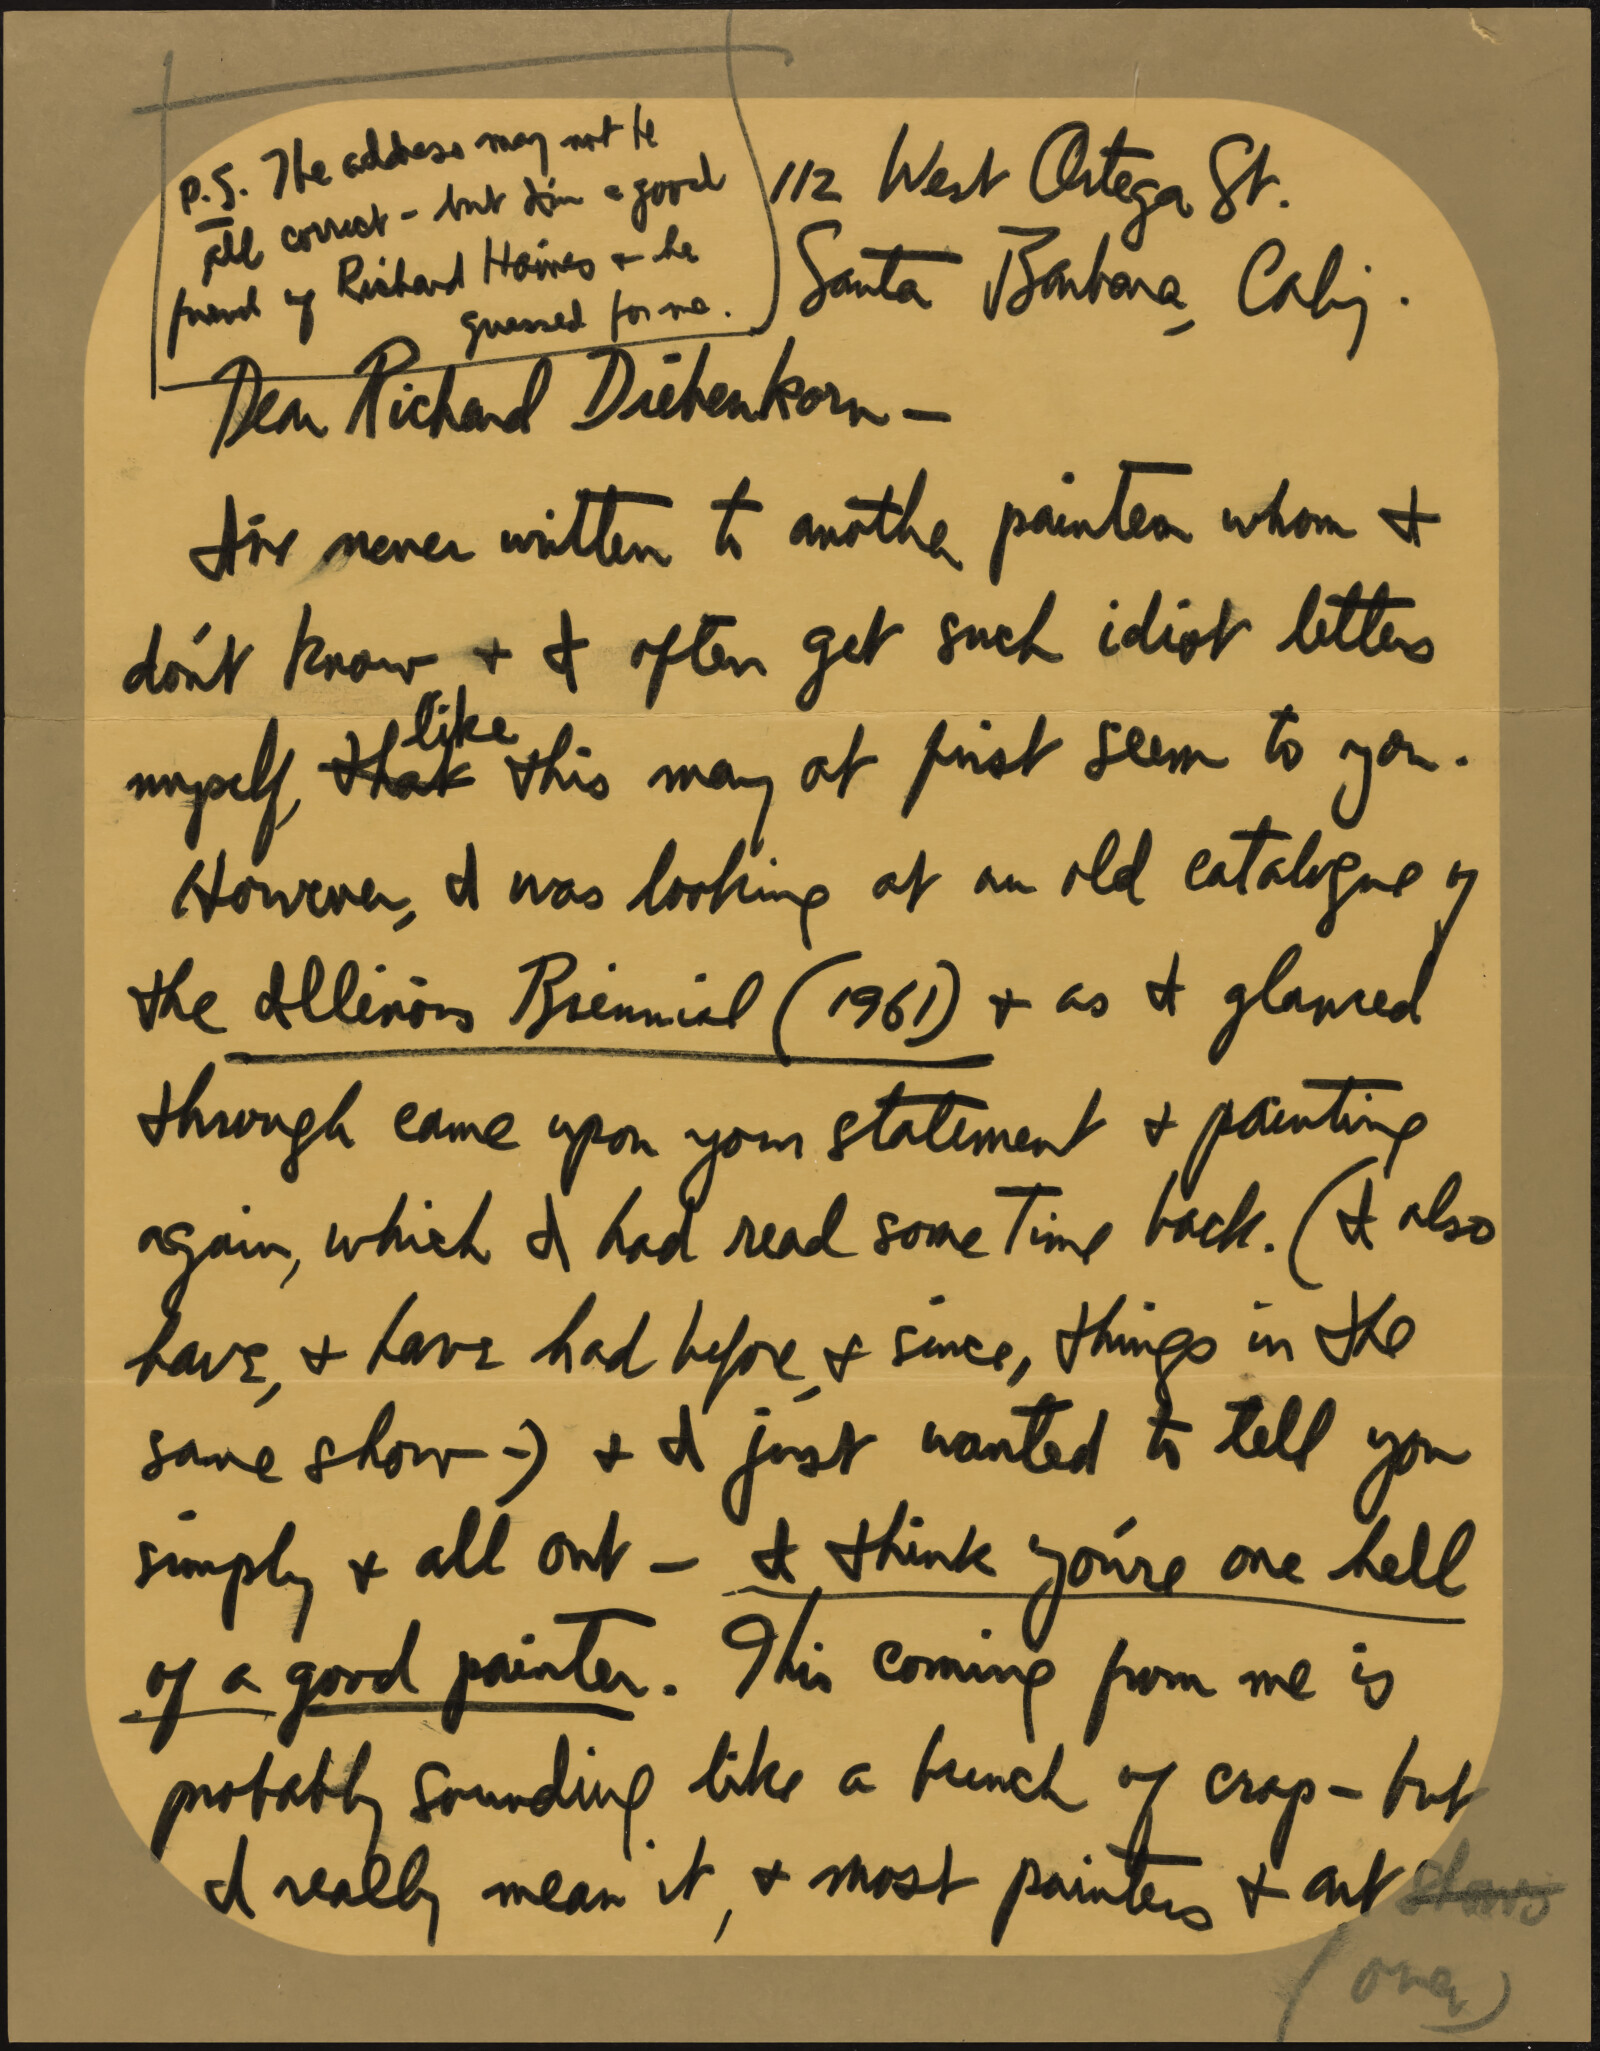 P.S. The address may not be
all correct - but I'm a good
friend of Richard Haines + he
guessed for me.
112 West Ortega St.
Santa Barbara, Calif.
Dear Richard Diebenkorn -
I've never written to another painter whom I
don't know + I often get such idiot letters
myself, that like this may at first seem to you.
However, I was looking at an old catalogue of
the Illinois Biennial (1961) + as I glanced
through came upon your statement + painting
again, which I had read some time back. (I also
have, + have had before, + since, things in the
same show -) + I just wanted to tell you
simply + all out - I think you're one hell
of a good painter. This coming from me is
probably sounding like a bunch of crap - but
I really mean it, + most painters + art
(over)